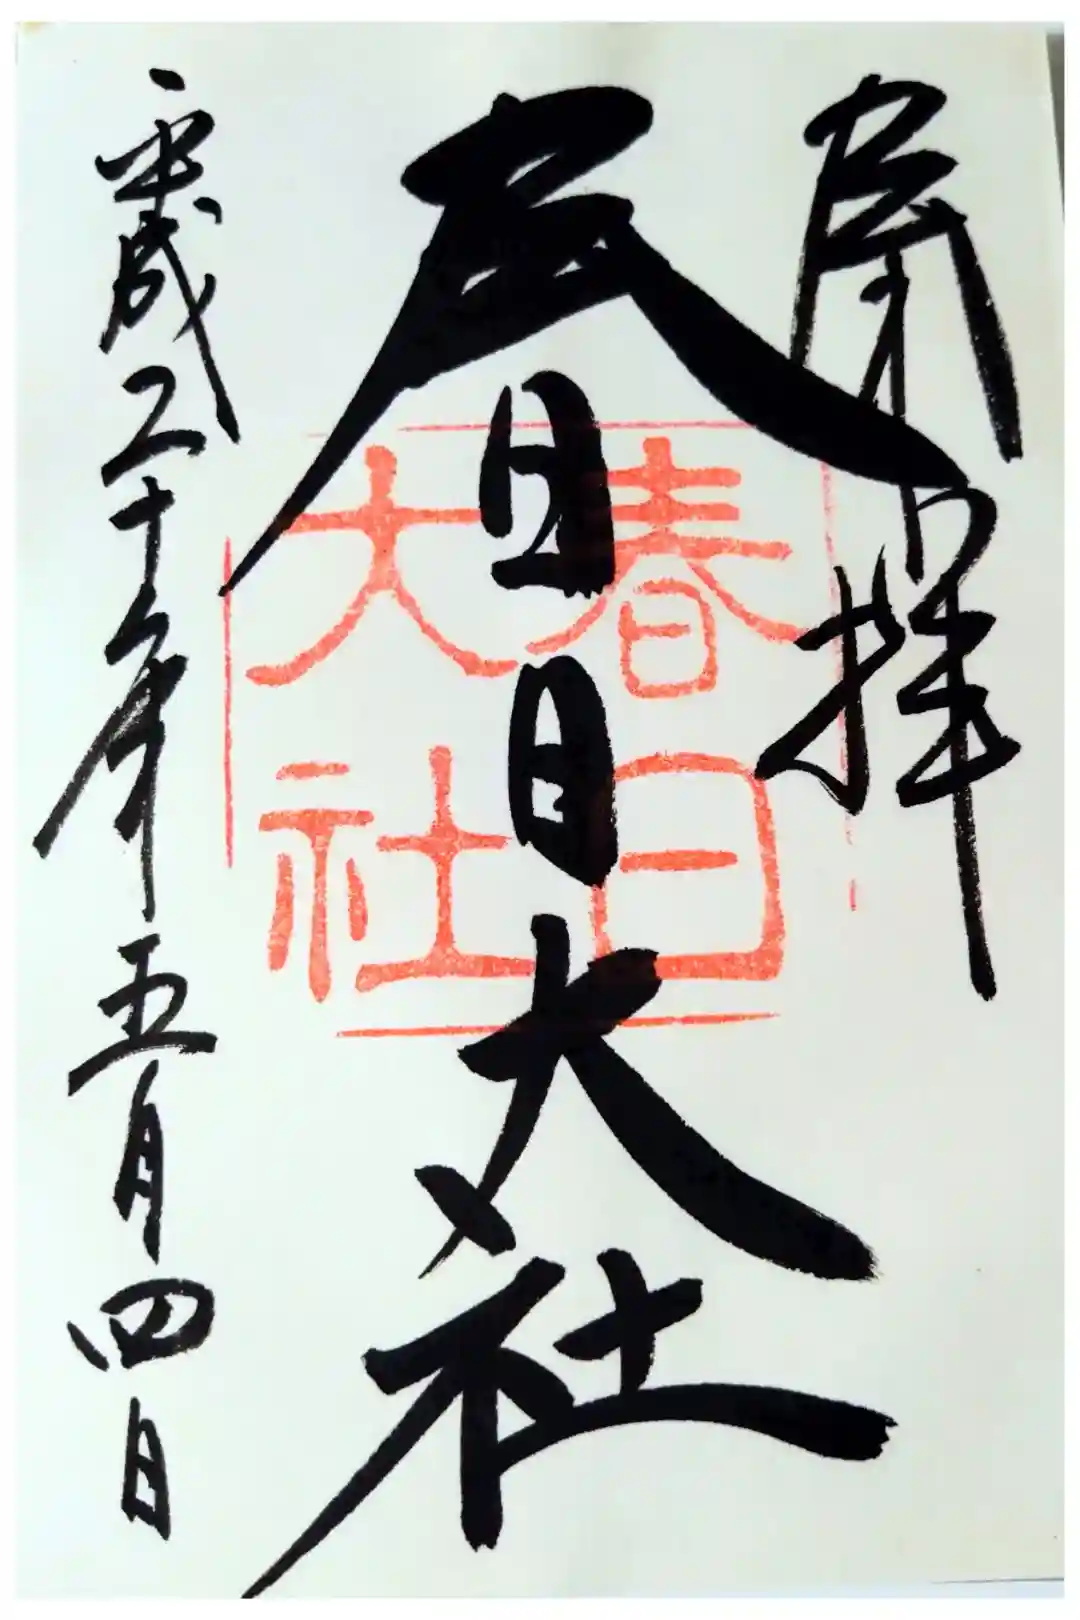 奉拝
春日大社
平成二十年五月四日
春日
大社